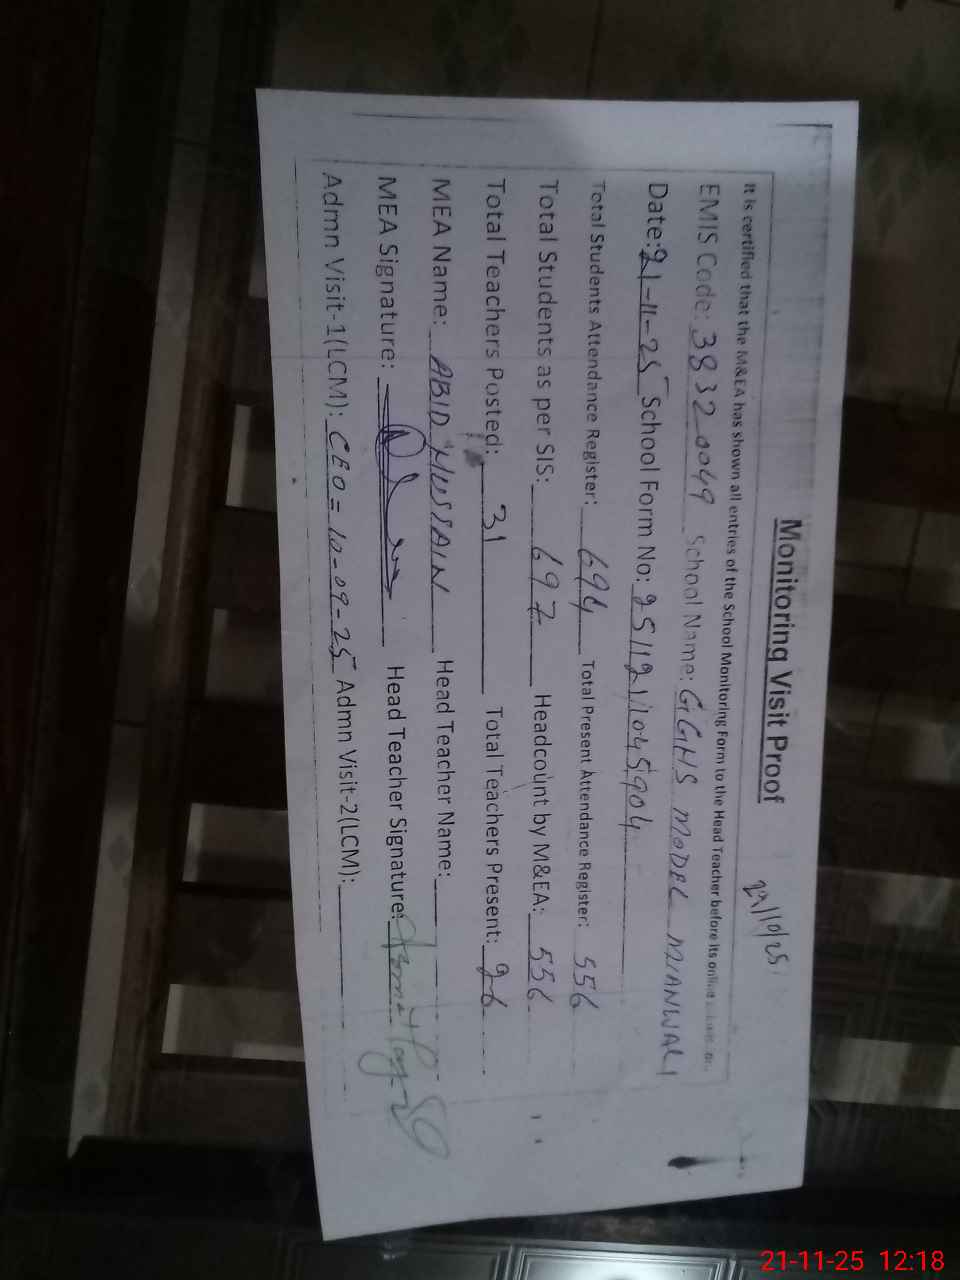 Monitoring Visit Proof
It is certified that the M&EA has shown all entries of the School Monitoring Form to the Head Teacher before its online
EMIS Code: 38320049 School Name: GGHS MODEL MIANWALI
Date: 21-11-25 School Form No: 2511211045904
Total Students Attendance Register: 694 Total Present Attendance Register: 556
Total Students as per SIS: 697 Headcount by M&EA: 556
Total Teachers Posted: 31 Total Teachers Present: 26
MEA Name: ABID HUSSAIN Head Teacher Name:
MEA Signature: Head Teacher Signature:
Admn Visit-1(LCM): CEO = 10-09-25 Admn Visit-2(LCM):
21-11-25 12:18